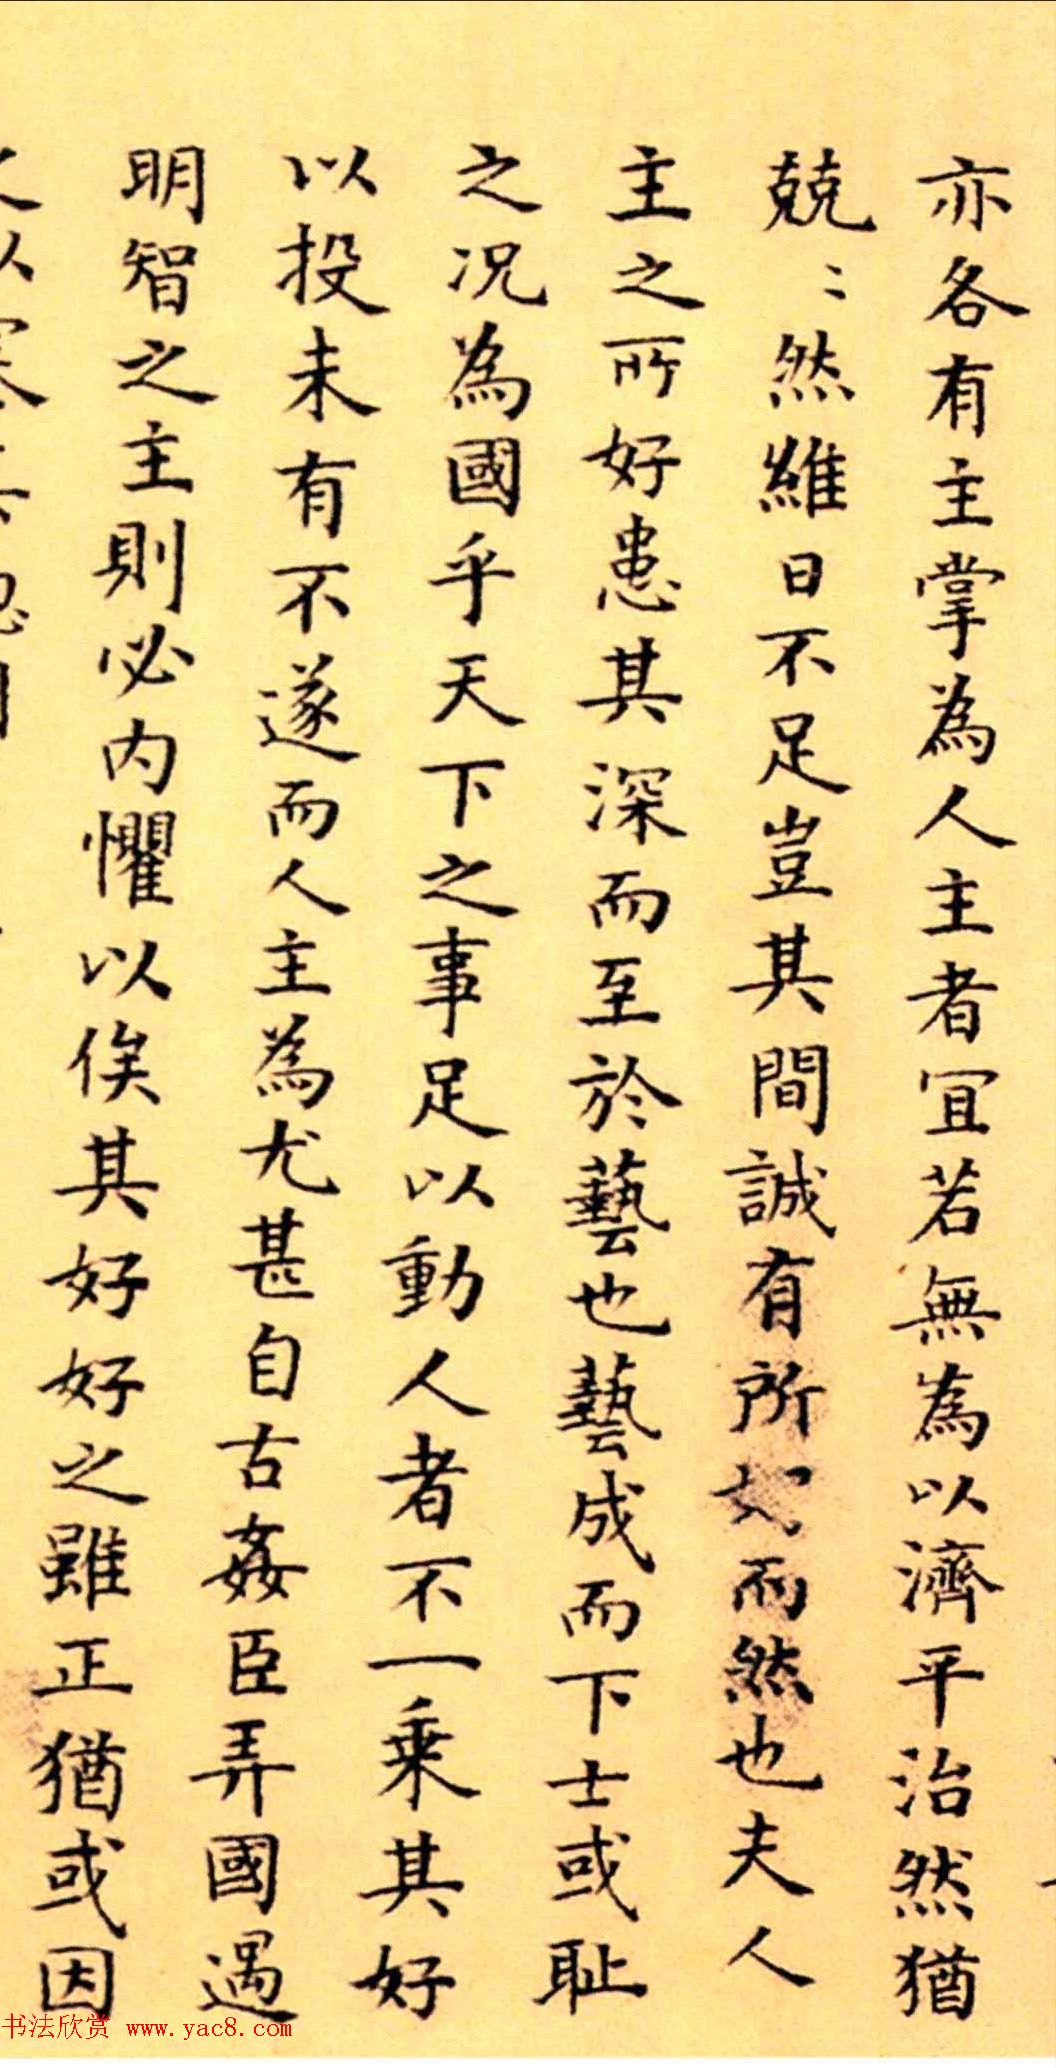 亦各有主掌為人主者宜若無為以濟平治然猶
兢〻然維日不足豈其間誠有所而然也夫人
主之所好患其深而至於藝也藝成而下士或耻
之况為國乎天下之事足以動人者不一乗其好
以投未有不遂而人主為尤甚自古姦臣弄國遇
明智之主則必内懼以俟其好好之雖正猶或因
书法欣赏 www.yac8.com